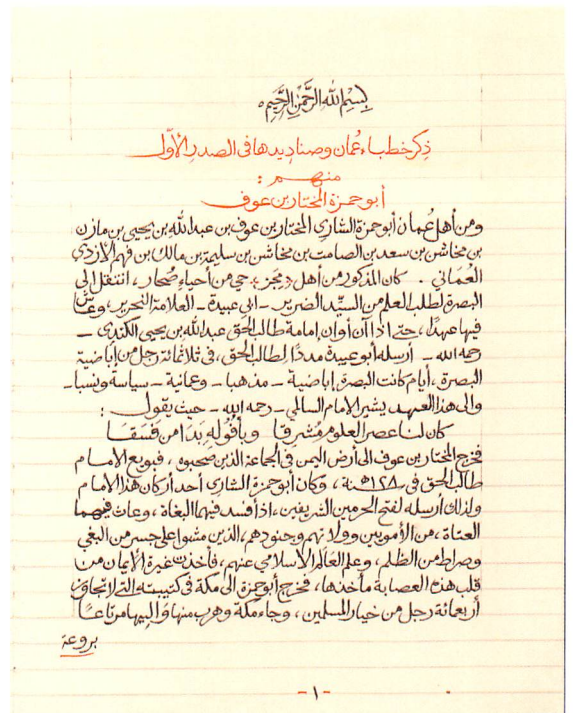 بِسْمِ اللهِ الرَّحْمٰنِ الرَّحِيْمِ
ذِكر خطباء عُمان وصناديدها فى الصدر الأوّل
منهم :
أبو حمزة المختار بن عوف
ومن أهل عُمان أبو حمزة الشارى المختار بن عوف بن عبد الله بن يحيى بن مازن
بن مخاشن بن سعد بن الصامت بن مخاشن بن سليمة بن مالك بن فهم الأزدى
العُمَاني . كان المذكور من أهل «مجز» حي من أحياء صُحار، انتقل إلى
البصرة لطلب العلم من السيّد الضرير - ابى عبيدة - العلامة النحرير، وعاش
فيها عهدًا، حتى اذا أن أوان إمامة طالب الحق عبد الله بن يحيى الكندى -
رحمه الله - أرسله أبو عبيدة مددًا لطالب الحق، فى ثلاثمائة رجل من إباضية
البصرة، أيام كانت البصرة إباضية - مذهبا - وعمانية - سياسة ونسبا -
والى هذا العهد يشير الامام السالمي - رحمه الله - حيث يقول :
كان لنا عصر العلوم مُشرقا وبأفُولِهِ بَدَا من فَسَقَا
فخرج المختار بن عوف الى أرض اليمن فى الجماعة الذين صحبوه، فبويع الامام
طالب الحق فى ١٢٨هـنة، وكان أبو حمزة الشارى أحد أركان هذا الامام
ولذلك أرسله لفتح الحرمين الشريفين، اذ أفسد فيها البغاة، وعاث فيهما
العتاة، من الأمويين وولاتهم وجنودهم، الذين مشوا على جسر من البغي
وصراط من الظلم، وعلم العالم الاسلامي عنهم، فأخذت غيرة الأيمان من
قلب هذه العصابة مأخذها، فخرج أبو حمزة الى مكة فى كتيبته التى لا تجاوز
أربعمائة رجل من خيار المسلمين، وجاء مكة وهرب منها وَاليها مرتاعًا
بروعة
- ١ -